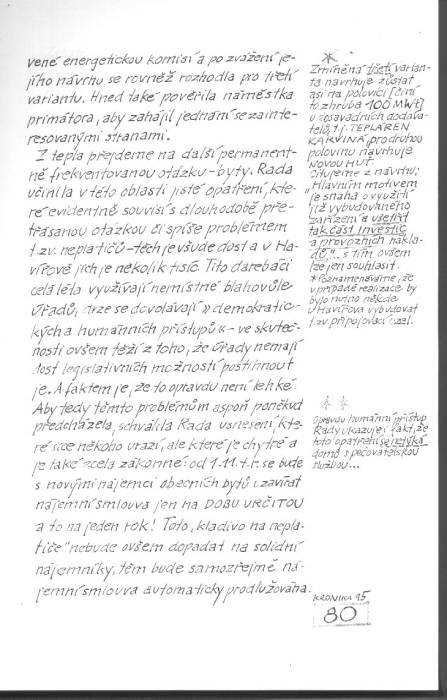 vené energetickou komisí a po zvážení je-
jího návrhu se rovněž rozhodla pro třetí
variantu. Hned také pověřila náměstka
primátora, aby zahájil jednání se zainte-
resovanými stranami.
Z tepla přejdeme na další permanent-
ně frekventovanou otázku - byty. Rada
učinila v této oblasti jisté opatření, kte-
ré evidentně souvisí s dlouhodobě pře-
třásanou otázkou či spíše problémem
t.zv. neplatičů - těch je všude dost a v Ha-
vířově jich je několik tisíc. Tito darebáci
celá léta využívají nemístné blahovůle
úřadů, drze se dovolávají "demokratic-
kých a humánních přístupů" - ve skuteč-
nosti ovšem těží z toho, že úřady nemají
dost legislativních možností postihnout
je. A faktem je, že to opravdu není lehké.
Aby tedy těmto problémům aspoň poněkud
předcházela, schválila Rada usnesení, kte-
ré sice někoho urazí, ale které je chytré a
je také zcela zákonné: od 1.11. t.r. se bude
s novými nájemci obecních bytů uzavírat
nájemní smlouva jen na DOBU URČITOU
a to na jeden rok! Toto "kladivo na nepla-
tiče" nebude ovšem dopadat na solidní
nájemníky, těm bude samozřejmě ná-
jemní smlouva automaticky prodlužována.
Zmíněná třetí varian-
ta navrhuje zůstat
asi na polovici (činí
to zhruba 100 MWt)
u dosavadních dodava-
telů, t.j. TEPLÁREN
KARVINÁ, pro druhou
polovinu navrhuje
NOVOU HUŤ.
Citujeme z návrhu:
"Hlavním motivem
je snaha o využití
již vybudovaného
zařízení a ušetřit
tak část investic
a provozních nákla-
dů"... s tím ovšem
lze jen souhlasit.
* Poznamenáváme, že
v případě realizace by
bylo nutno někde
u Havířova vybudovat
t.zv. připojovací uzel.
* *
Opravdu humánní přístup
Rady ukazuje i fakt, že
toto opatření se netýká
domů s pečovatelskou
službou...
KRONIKA 95
80